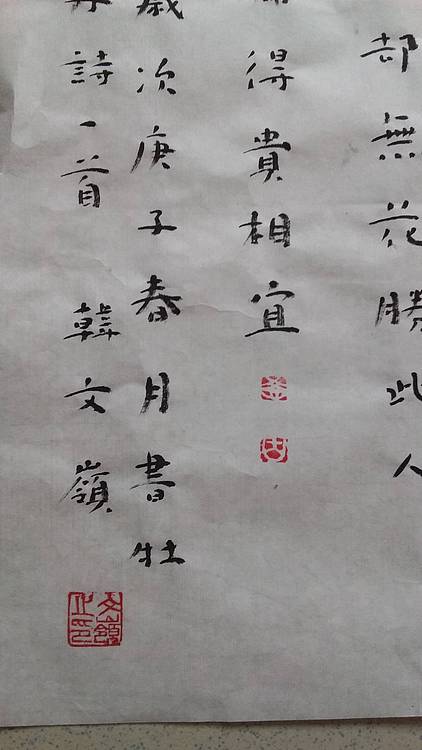 却無花勝此人
得貴相宜
歲次庚子春月書牡
丹詩一首 韓文嶺
文嶺之印